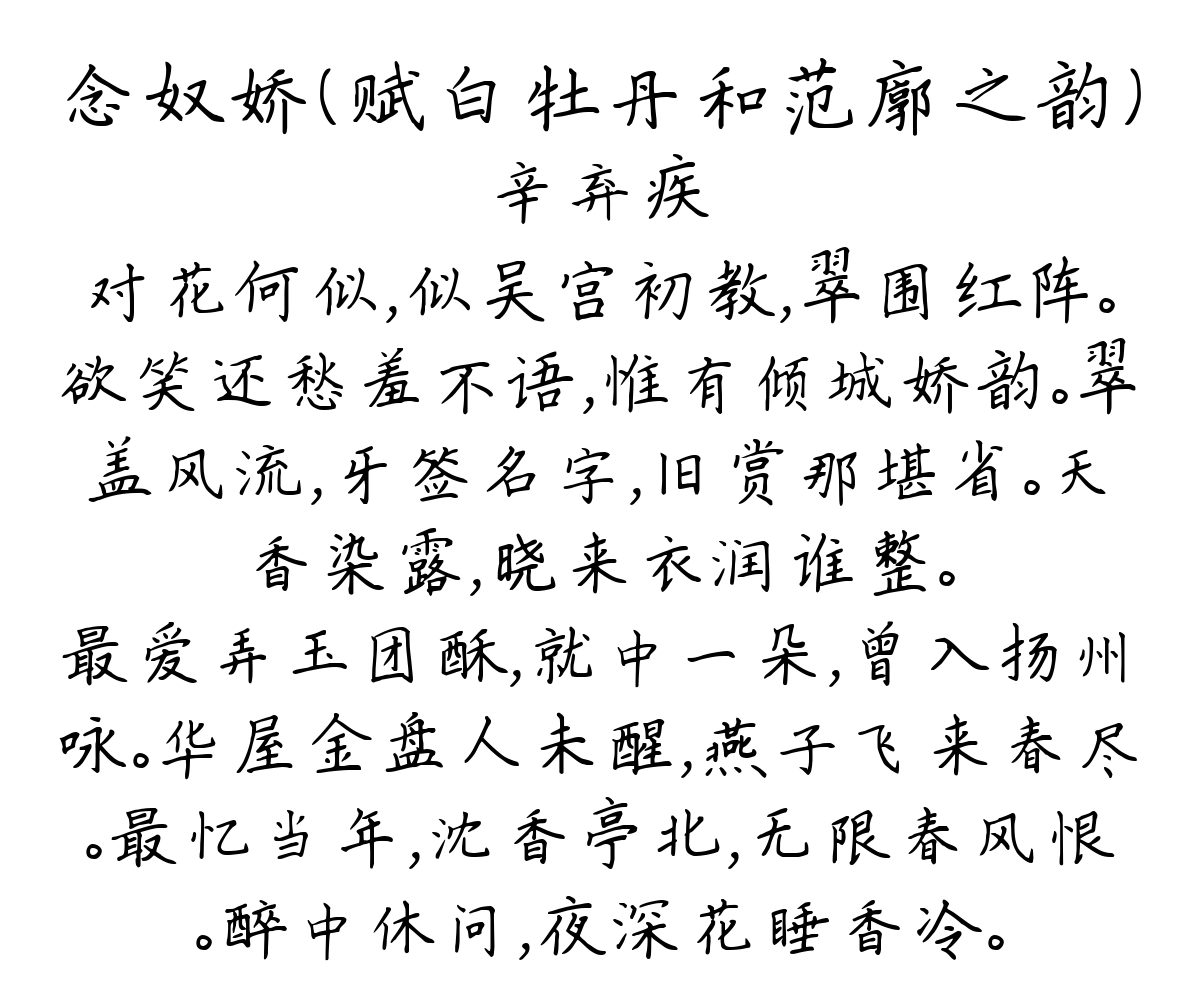 念奴娇(赋白牡丹和范廓之韵)
辛弃疾
对花何似,似吴宫初教,翠围红阵。
欲笑还愁羞不语,惟有倾城娇韵。翠
盖风流,牙签名字,旧赏那堪省。天
香染露,晓来衣润谁整。
最爱弄玉团酥,就中一朵,曾入扬州
咏。华屋金盘人未醒,燕子飞来春尽
。最忆当年,沈香亭北,无限春风恨
。醉中休问,夜深花睡香冷。